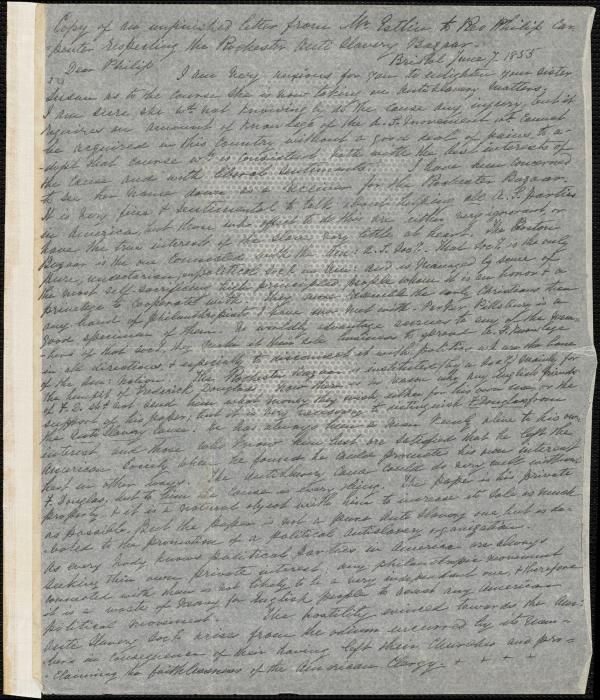 Copy of an unfinished letter from Mr Estlin to Rev Philip Car
penter respecting the Rochester Anti Slavery Bazaar.
Bristol June 7. 1855
Dear Philip
I am very anxious for you to enlighten your sister
Susan as to the course she is now taking in Antislavery matters.
I am sure she wd not knowingly do the cause any injury, but it
requires an amount of knowledge of the A.S. movement wh cannot
be acquired in this country without a good deal of pains to a-
-dopt that course wh is consistent both with the best interests of
the cause and with liberal sentiments. I have been concerned
to see her name down as a receiver for the Rochester Bazaar.
It is very fine & sentimental to talk about helping all A.S. parties
in America, but those who affect to do this are either very ignorant or
have the true interest of the slave very little at heart. The Boston
Bazaar is the one connected with the Am: A.S. Socy. That Socy is the only
pure, unsectarian, unpolitical Socy in Am: and is managed by some of
the most self-sacrificing, high principled, people whom it is an honor & a
privilege to cooperate with. They more resemble the early Christians than
any band of philanthropists I have ever met with. Mr Pillsbury is a
good specimen of them. No worldly advantage accrues to any of the mem-
-bers of that Socy, they make it their sole business to spread A.S. knowledge
in all directions, & especially to disconnect it with politics wh are the bane
of the Am: nation. The Rochester Bazaar is instituted (by a Socy) mainly for
the benefit of Frederick Douglass. Now there is no reason why any English friends
of F.D. shd not send him what money they wish either for his own use, or the
support of his paper; but it is very necessary to distinguish F. Douglass from
the Anti Slavery Cause. He has always been a man keenly alive to his own
interest and those who know him best are satisfied that he left the
American Society when he found he could promote his own interest
best in other ways. The Antislavery Cause could do very well without
F. Douglass, but to him the cause is every thing. The paper is his private
property & it is a natural object with him to increase its sale as much
as possible. But the paper is not a pure Anti Slavery one, but is de-
-voted to the promotion of a political Antislavery organization.
As every body knows political parties in America are always
seeking their own private interest any philanthropic movement
connected with them is not likely to be a very independant one, & therefore
it is a waste of money for English people to assist any American
political movement. The hostility evinced towards the Am:
Anti Slavery Socy arises from the odium incurred by its mem-
bers in consequence of their having left their Churches and pro-
-claiming the faithlessness of the American Clergy + + + +